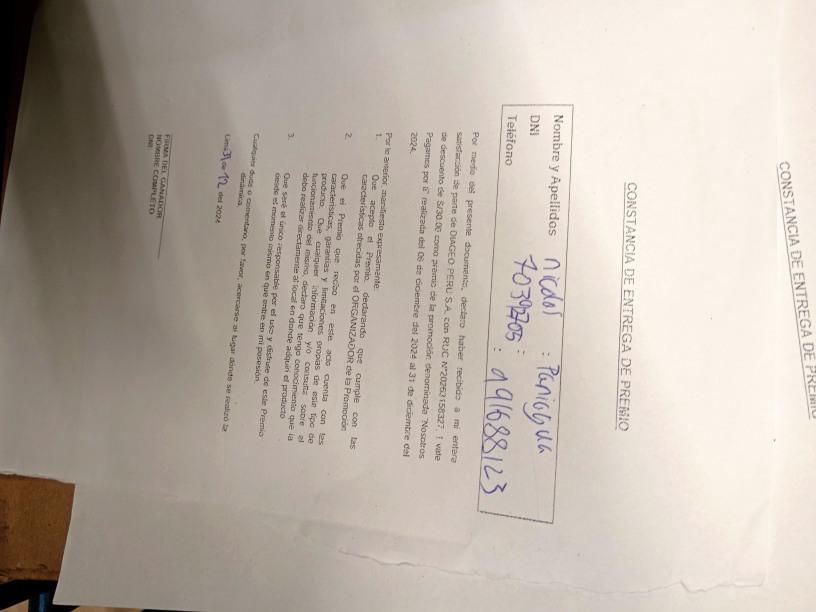 CONSTANCIA DE ENTREGA DE PREMIO
CONSTANCIA DE ENTREGA DE PREMIO
Nombre y Apellidos : Nicolas Paniagua
DNI : 70392705
Teléfono : 991688123
Por medio del presente documento, declaro haber recibido a mi entera
satisfacción de parte de DIAGEO PERU S.A. con RUC N°20263158327, 1 vale
de descuento de S/30.00 como premio de la promoción denominada "Nosotros
Pagamos por ti" realizada del 06 de diciembre del 2024 al 31 de diciembre del
2024.
Por lo anterior, manifiesto expresamente:
1. Que acepto el Premio, declarando que cumple con las
características ofrecidas por el ORGANIZADOR de la Promoción
2. Que el Premio que recibo en este acto cuenta con las
características, garantías y limitaciones propias de este tipo de
producto. Que cualquier información y/o consulta sobre el
funcionamiento del mismo, declaro que tengo conocimiento que la
debo realizar directamente al local en donde adquirí el producto
3. Que seré el único responsable por el uso y disfrute de este Premio
desde el momento mismo en que entre en mi posesión.
Cualquier duda o comentario, por favor, acercarse al lugar donde se realizó la
dinámica.
Lima 31 de 12 del 2024
FIRMA DEL GANADOR
NOMBRE COMPLETO
DNI: